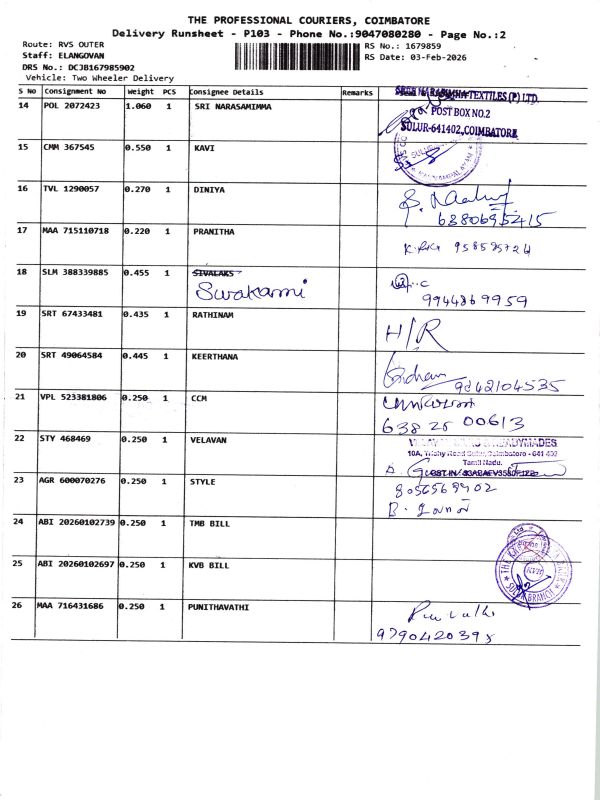 THE PROFESSIONAL COURIERS, COIMBATORE
Delivery Runsheet - P103 - Phone No.:9047080280 - Page No.:2
Route: RVS OUTER
Staff: ELANGOVAN
DRS No.: DCJB167985902
Vehicle: Two Wheeler Delivery
RS No.: 1679859
RS Date: 03-Feb-2026
S No Consignment No Weight PCS Consignee Details Remarks
14 POL 2072423 1.060 1 SRI NARASAMIMMA
TEXTILES (P) LTD.
POST BOX NO.2
SULUR-641402, COIMBATORE
15 CMM 367545 0.550 1 KAVI
16 TVL 1290057 0.270 1 DINIYA
6380695415
17 MAA 715110718 0.220 1 PRANITHA
18 SLM 388339885 0.455 1 SIVALAKS
Sivakami
9944869959
19 SRT 67433481 0.435 1 RATHINAM
H/R
20 SRT 49064584 0.445 1 KEERTHANA
9842104535
21 VPL 523381806 0.250 1 CCM
638 25 00613
22 STY 468469 0.250 1 VELAVAN
READYMADES
10A, Trichy Road Sulur, Coimbatore - 641 402
Tamil Nadu.
23 AGR 600070276 0.250 1 STYLE
8056569902
24 ABI 20260102739 0.250 1 TMB BILL
25 ABI 20260102697 0.250 1 KVB BILL
SULUR BRANCH
26 MAA 716431686 0.250 1 PUNITHAVATHI